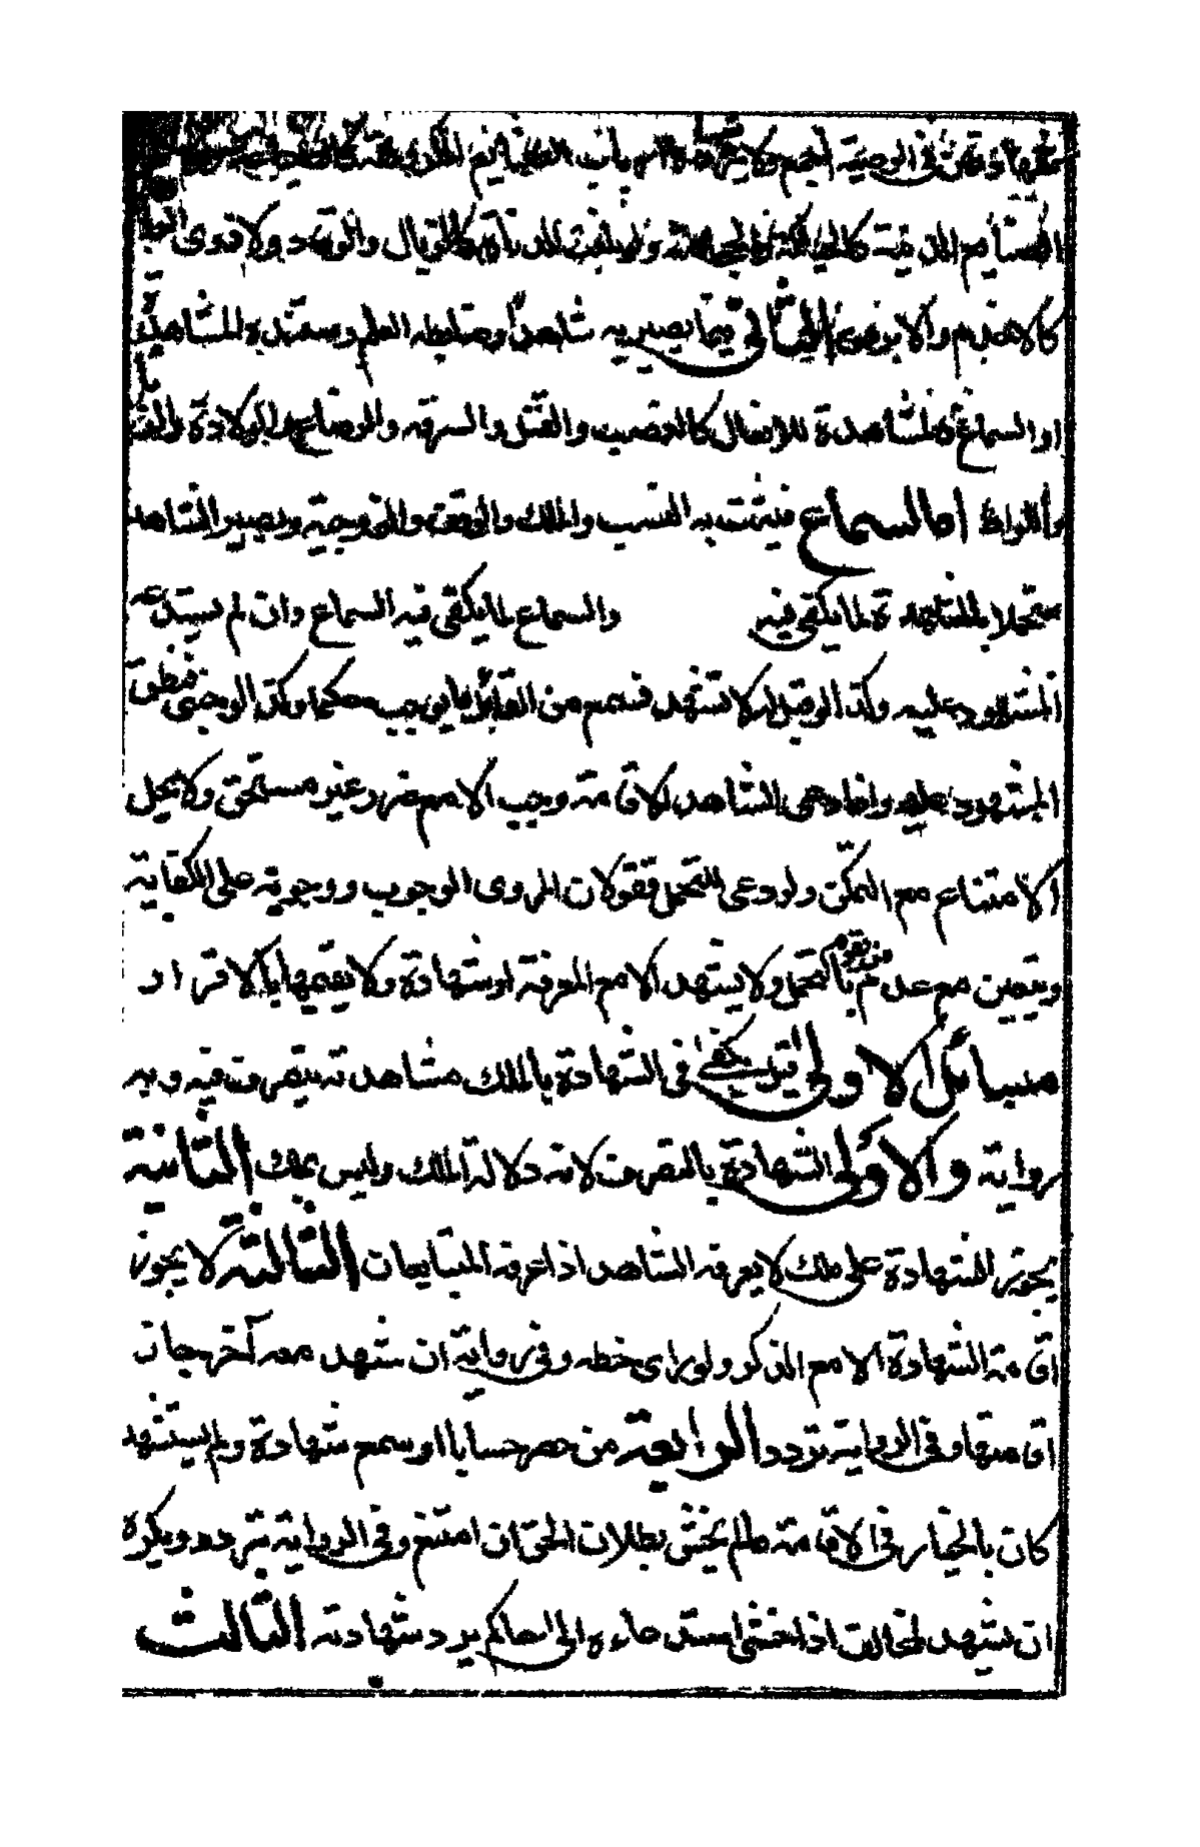 اقتسما مع الدنية كالحياكة والحجامة ولو بلغت الدناءة كالزبال والوقاد ولا ذوى العاهات
كالاجذم والابرص الثانى فيما يصير به شاهدا وضابطه العلم ومستنده المشاهدة
او السماع فالمشاهدة للافعال كالغصب والقتل والسرقه والرضاع والولادة والزنا
واللواط اما السماع فيثبت به النسب والملك والوقف والزوجية ويصير الشاهد
متحملا بالمشاهدة لما يكفى فيه والسماع لما يكفى فيه السماع وان لم يستدعه
المشهود عليه وكذا لو قيل له لا تشهد فسمع من القائل ما يوجب حكما وكذا لو خبى فنطق
المشهود عليه واذا دعى الشاهد للاقامة وجب الا مع ضرر غير مستحق ولا يحل
الامتناع مع التمكن ولو دعى للتحمل فقولان المروى الوجوب ووجوبه على الكفاية
ويتعين مع عدم من يقوم بالتحمل ولا يشهد الا مع المعرفة او شهادة ولا يقيمها بالاقرار
مسائل الاولى قيل يكفى فى الشهادة بالملك مشاهدته يتصرف فيه وبه
رواية والاولى الشهادة بالتصرف لانه دلالة الملك وليس بملك الثانية
يجوز الشهادة على ملك لا يعرفه الشاهد اذا عرفه المتبايعان الثالثة لا يجوز
اقامة الشهادة الا مع الذكر ولو راى خطه وفى رواية ان شهد معه آخر جاز
اقامتها وفى الرواية تردد الرابعة من حضر حسابا او سمع شهادة ولم يستشهد
كان بالخيار فى الاقامة ما لم يخش بطلان الحق ان امتنع وفى الرواية تردد ويكره
ان يشهد لمخالف اذا خشى استدعاءه الى الحاكم يرد شهادته الثالث